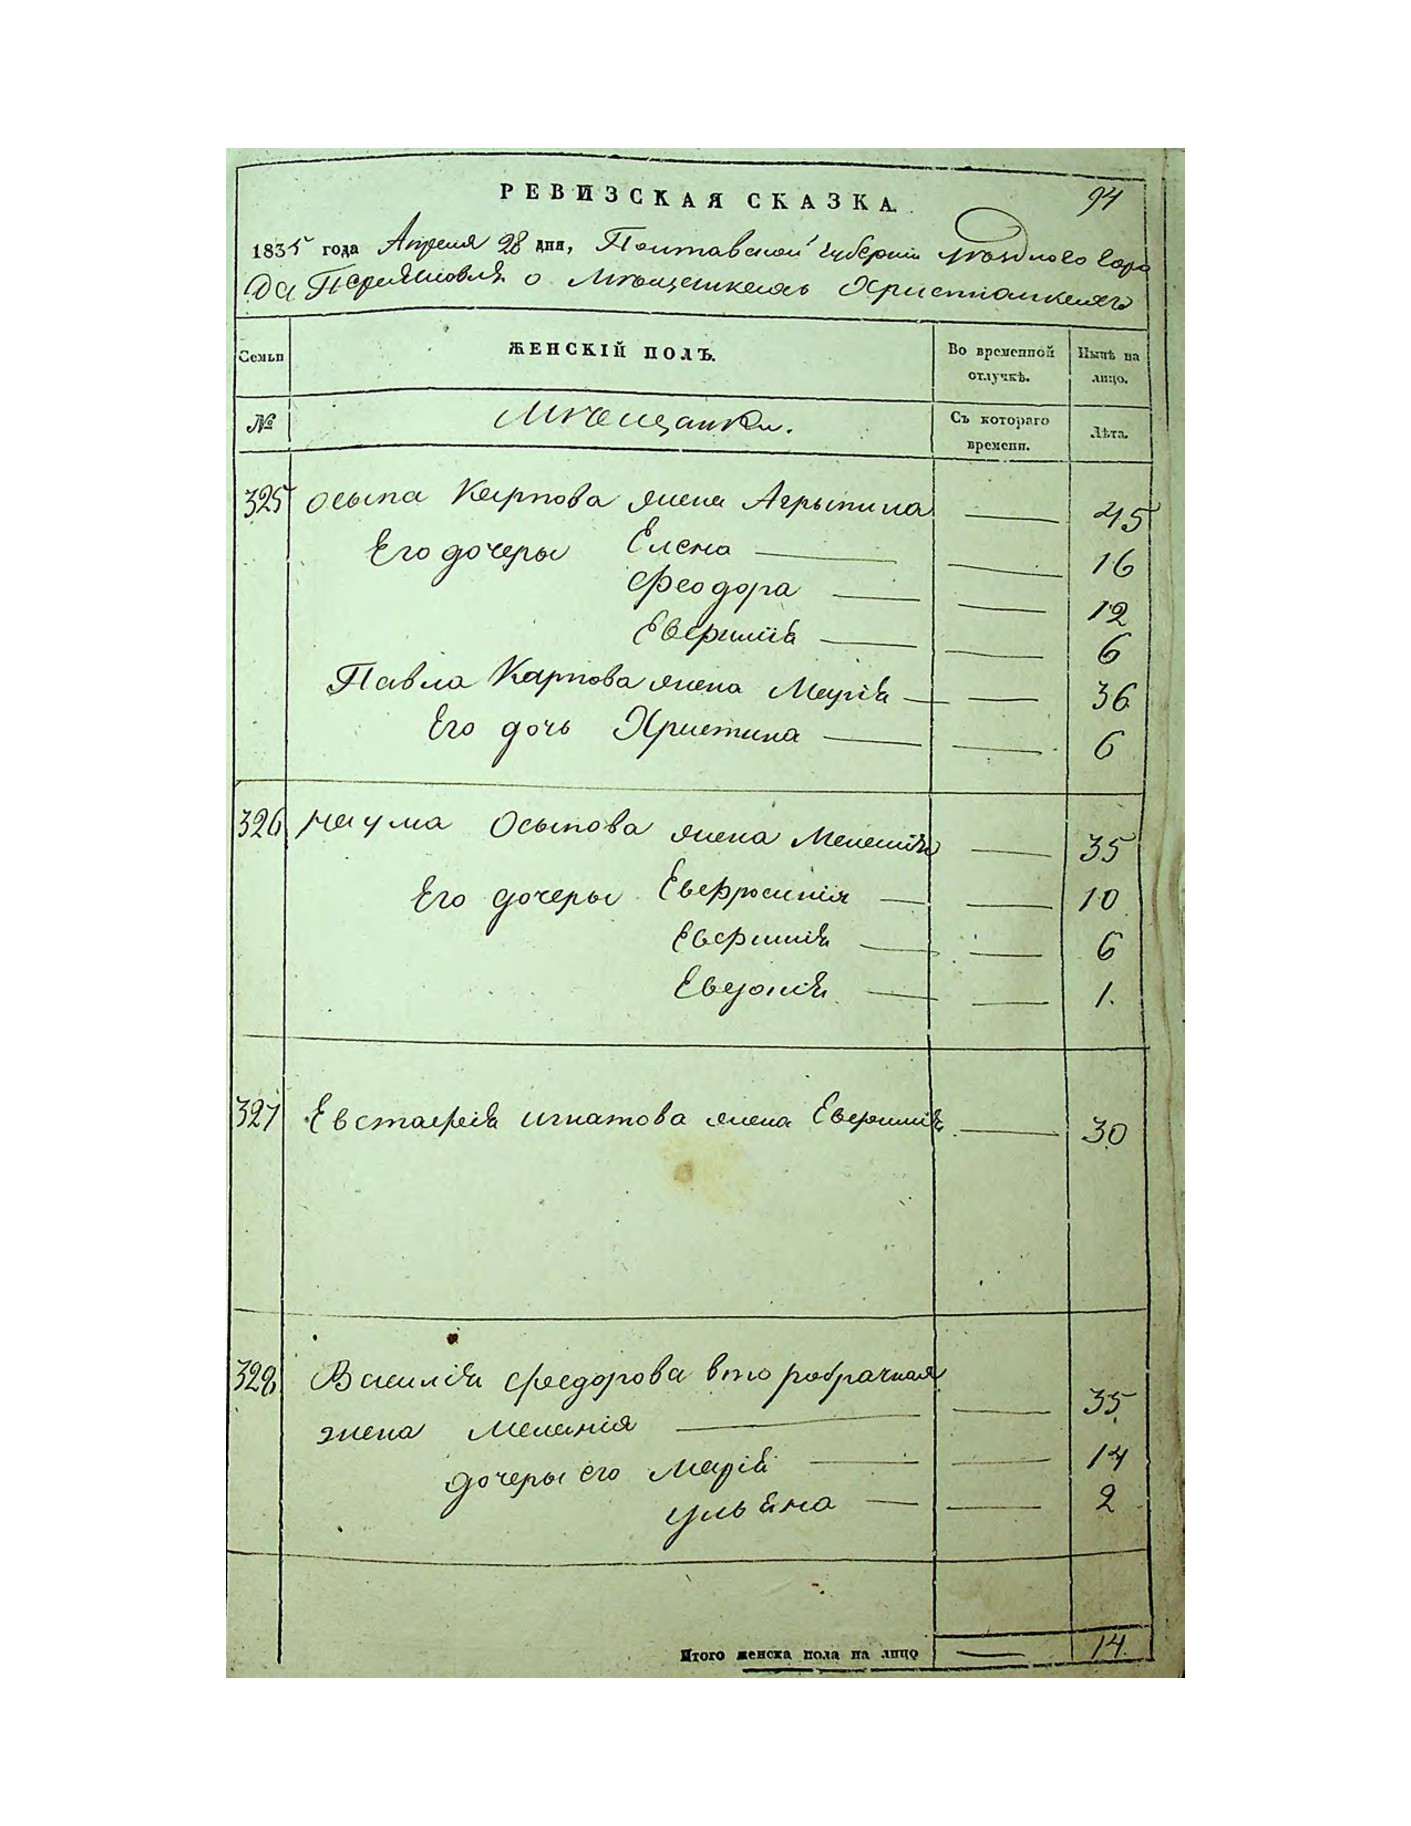 РЕВИЗСКАЯ СКАЗКА.
94
1835 года Апреля 28 дня, Полтавской Губернии уѣзднаго горо
да Переяславля о мѣщанкахъ Христіанкахъ
Семьи
ЖЕНСКІЙ ПОЛЪ.
Во временной отлучкѣ.
Нынѣ на лицо.
№
Мѣщанки.
Съ котораго времени.
Лѣта.
325 Осыпа Карпова жена Агрыпина — 45
Его дочеры Елена — 16
Феодора — 12
Евфимія — 6
Павла Карпова жена Марія — 36
Его дочь Христина — 6
326 Наума Осыпова жена Меланія — 35
Его дочеры Евфросинія — 10
Евфимія — 6
Евдокія — 1.
327 Евстафія Игнатова жена Евфимія — 30
328 Василія Феодорова второбрачная
жена Меланія — 35
дочеры его Марія — 14
Ульяна — 2
Итого женска пола на лицо — 14.